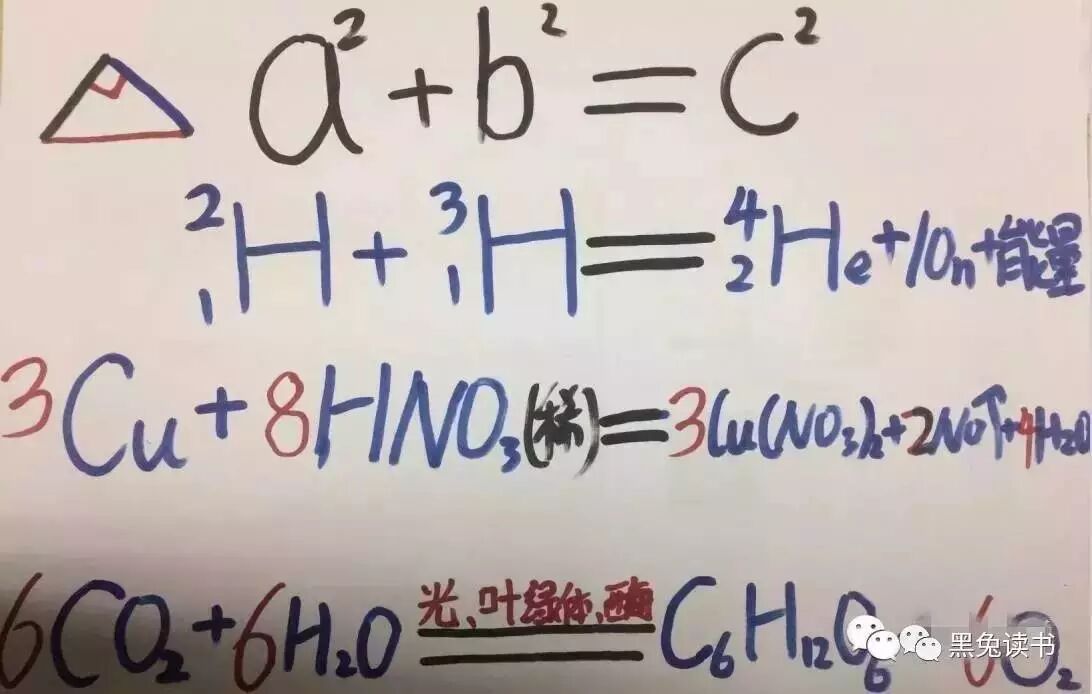 a² + b² = c²
²₁H + ³₁H = ⁴₂He + 10n + 能量
3Cu + 8HNO₃(稀) = 3Cu(NO₃)₂ + 2NO↑ + 4H₂O
光、叶绿体、酶
6CO₂ + 6H₂O = C₆H₁₂O₆ 6O₂
黑兔读书